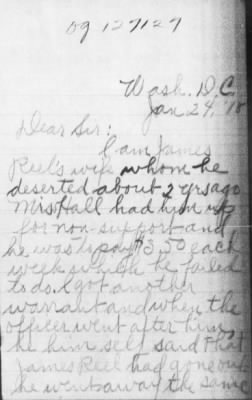 og 127127
Wash. D.C.
Jan 24, '18
Dear Sir:
I am James
Reel's wife whom he
deserted about 2 yrs ago
Mrs Hall had him up
for non-support and
he was to pay $3.50 each
week which he failed
to do. I got another
warrant and when the
officer went after him
he him self said that
James Reel had gone out
he went away the same